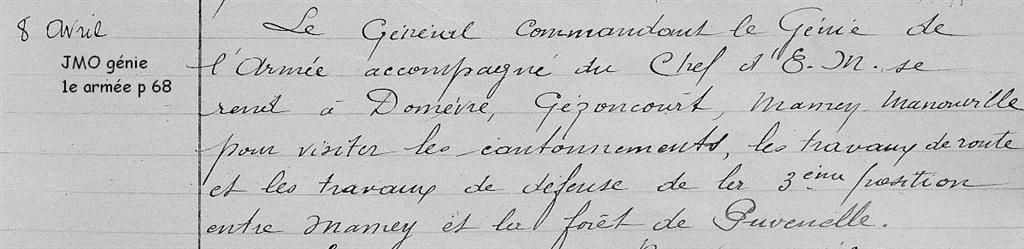 8 Avril
JMO génie
1e armée p 68
Le Général Commandant le Génie de
l'Armée accompagné du Chef d'E.-M. se
rend à Domèvre, Gézoncourt, Mamey Manonville
pour visiter les cantonnements, les travaux de route
et les travaux de défense de la 3ème position
entre Mamey et la forêt de Puvenelle.